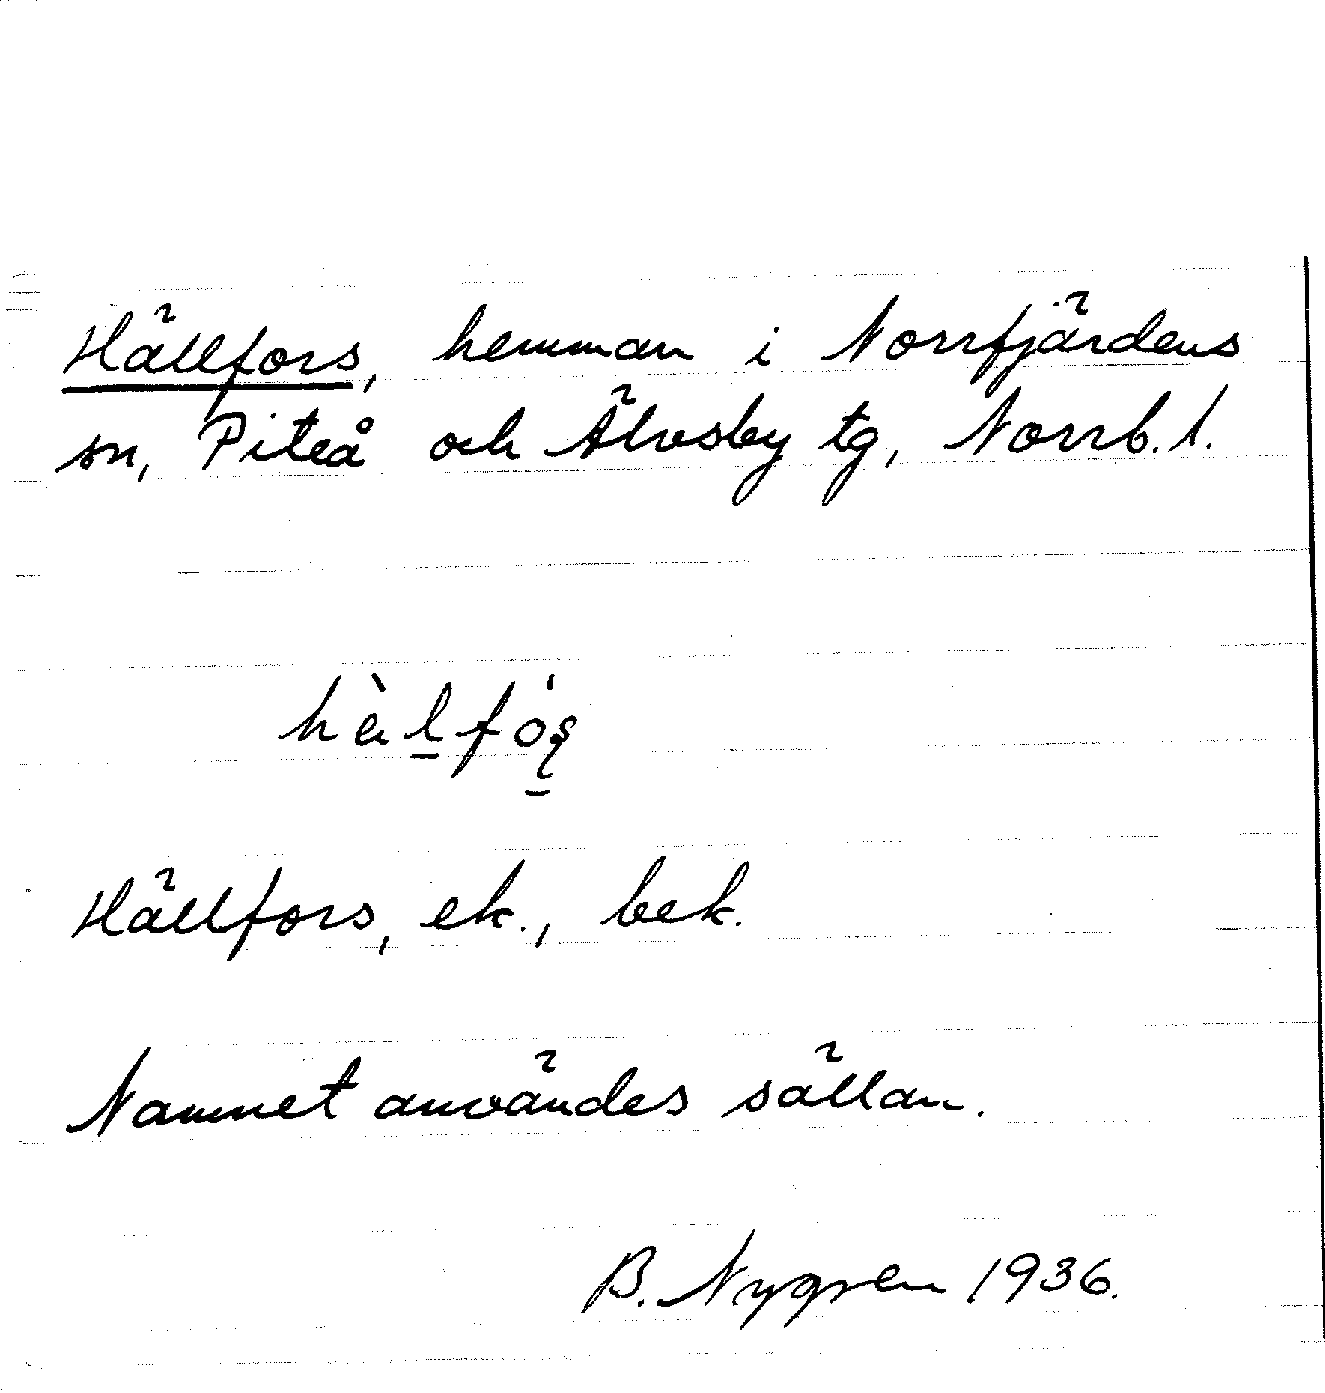 Hällfors, hemman i Norrfjärdens
sn, Piteå och Älvsby tg, Norrb. l.
hàl̲fóş̲
Hällfors, ek., bek.
Namnet användes sällan.
B. Nygren 1936.